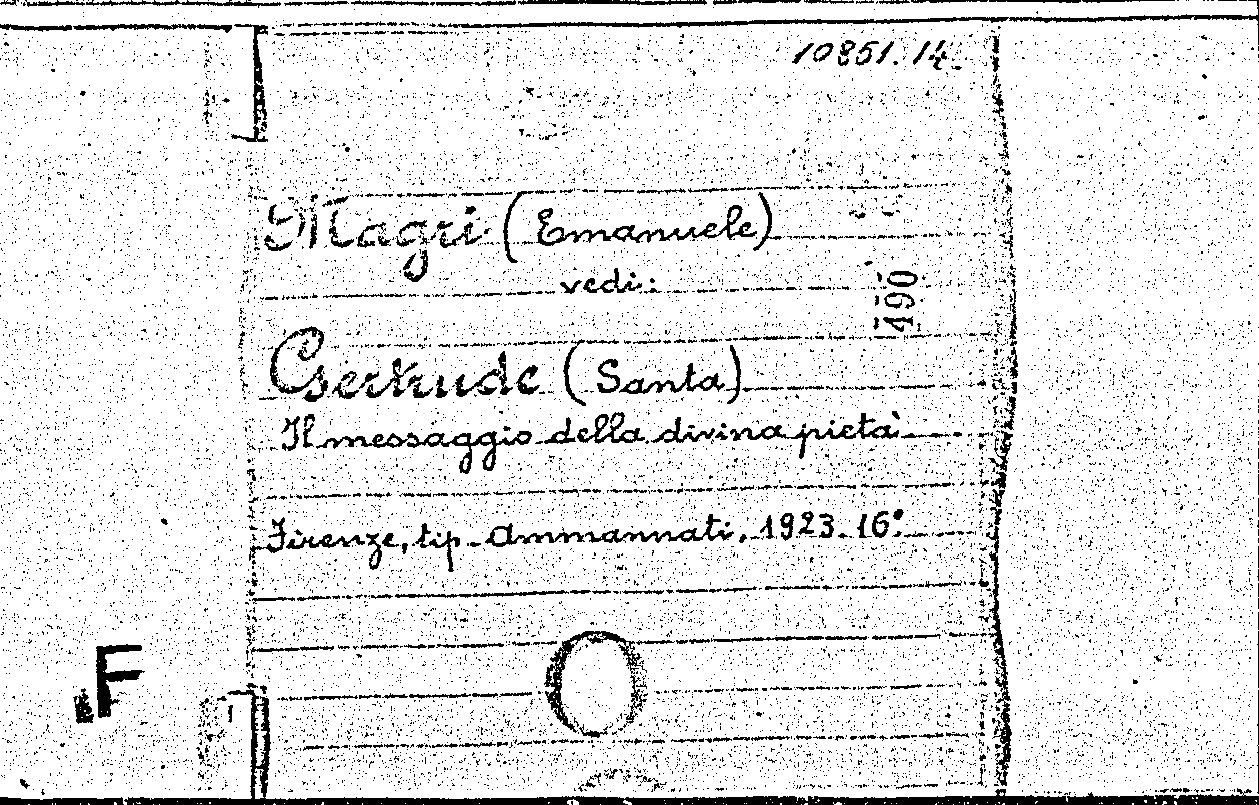 10851.14.
Magri (Emanuele)
vedi:
490
Gertrude (Santa)
Il messaggio della divina pietà
Firenze, tip. Ammannati, 1923. 16°
F